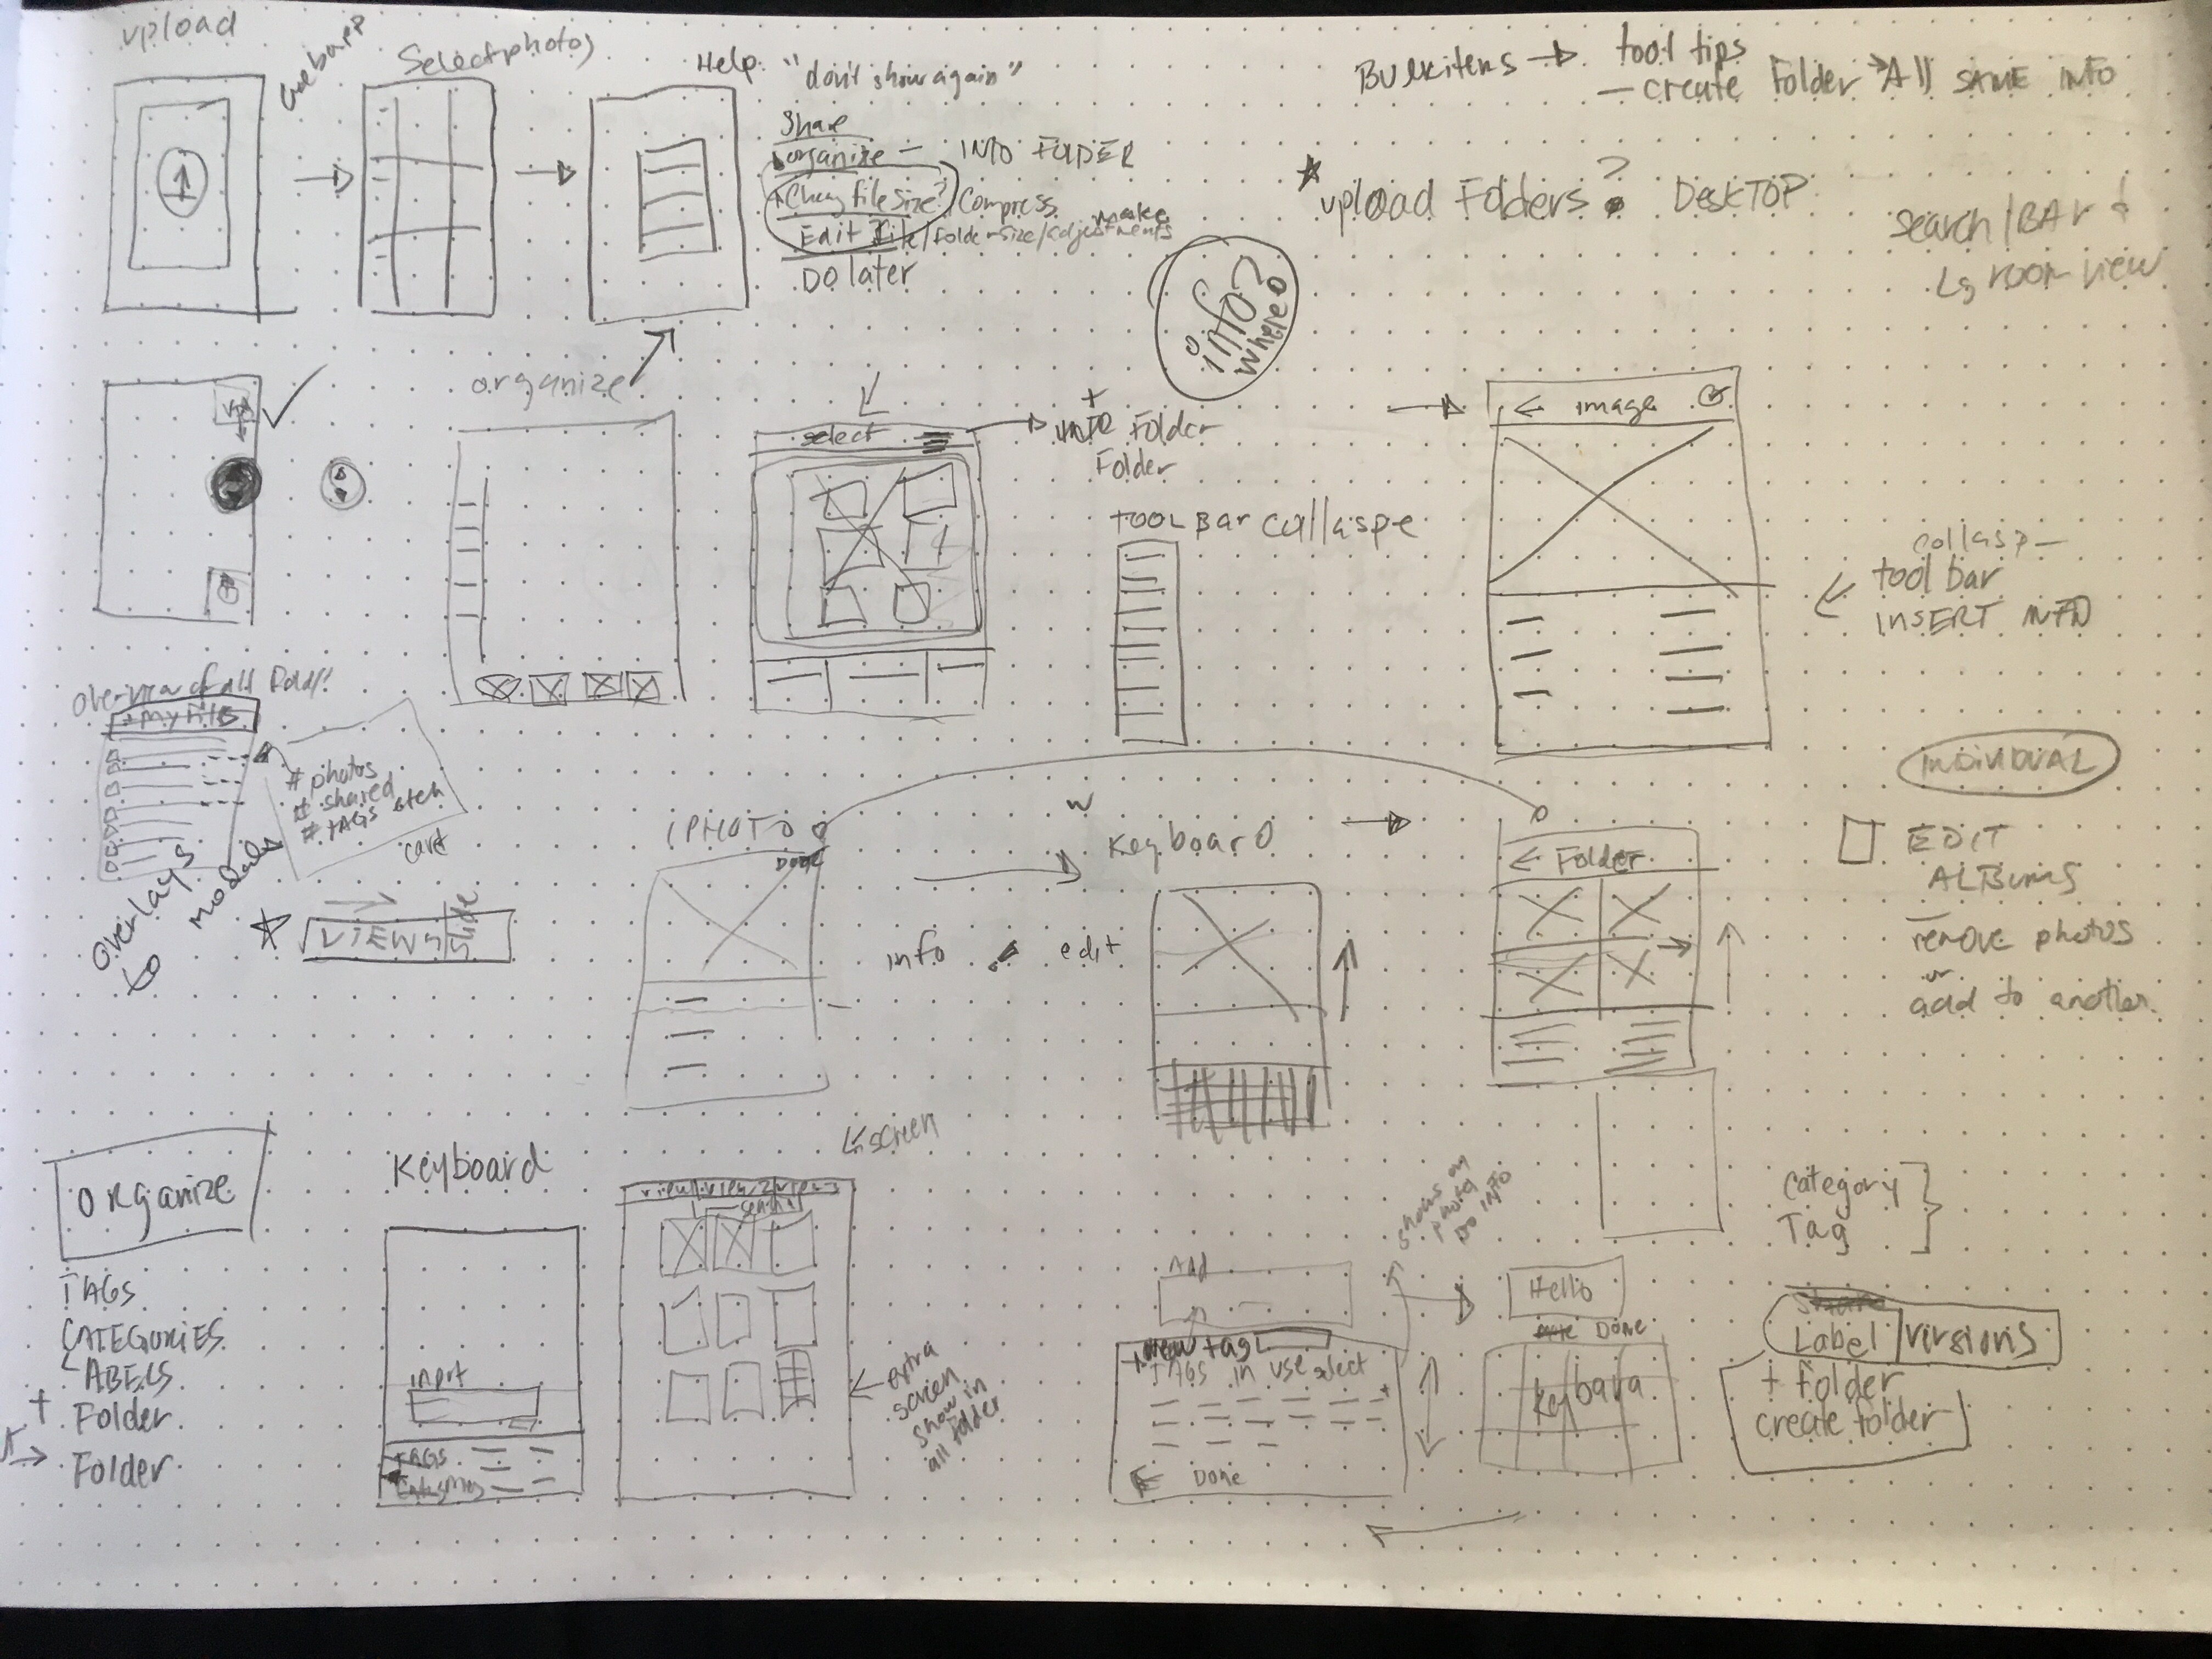 upload
webapp
Select photos
Help "don't show again"
Share
organize — INTO FOLDER
file size? Compress
Edit File/Folder size/adjustments
make
Do later
Bulkitems → tool tips
— create Folder → All SAME INFO
upload Folders? DESKTOP
search/BAR &
room view
info?
where?
organize
select
+
INTO Folder
Folder
TOOL BAR collaspe
← image
collasp—
tool bar
INSERT INFO
overview of all
+ My Files
# photos
# shared
# TAGS
card
overlays
modals
VIEWS/slide
IPHOTO
DONE
info
edit
Keyboard
← Folder
INDIVIDUAL
EDIT
ALBUMS
— remove photos
or
add to another
organize
TAGS
CATEGORIES
LABELS
+ Folder
→ Folder
Keyboard
input
TAGS
Categories
← screen
view 1 view 2 view 3
search
← extra
screen
show in
all folder
shows on
photo
INFO
Add
+ new tag
TAGS in use select
Done
Hello
Done
Category
Tag
Label versions
+ Folder
create folder